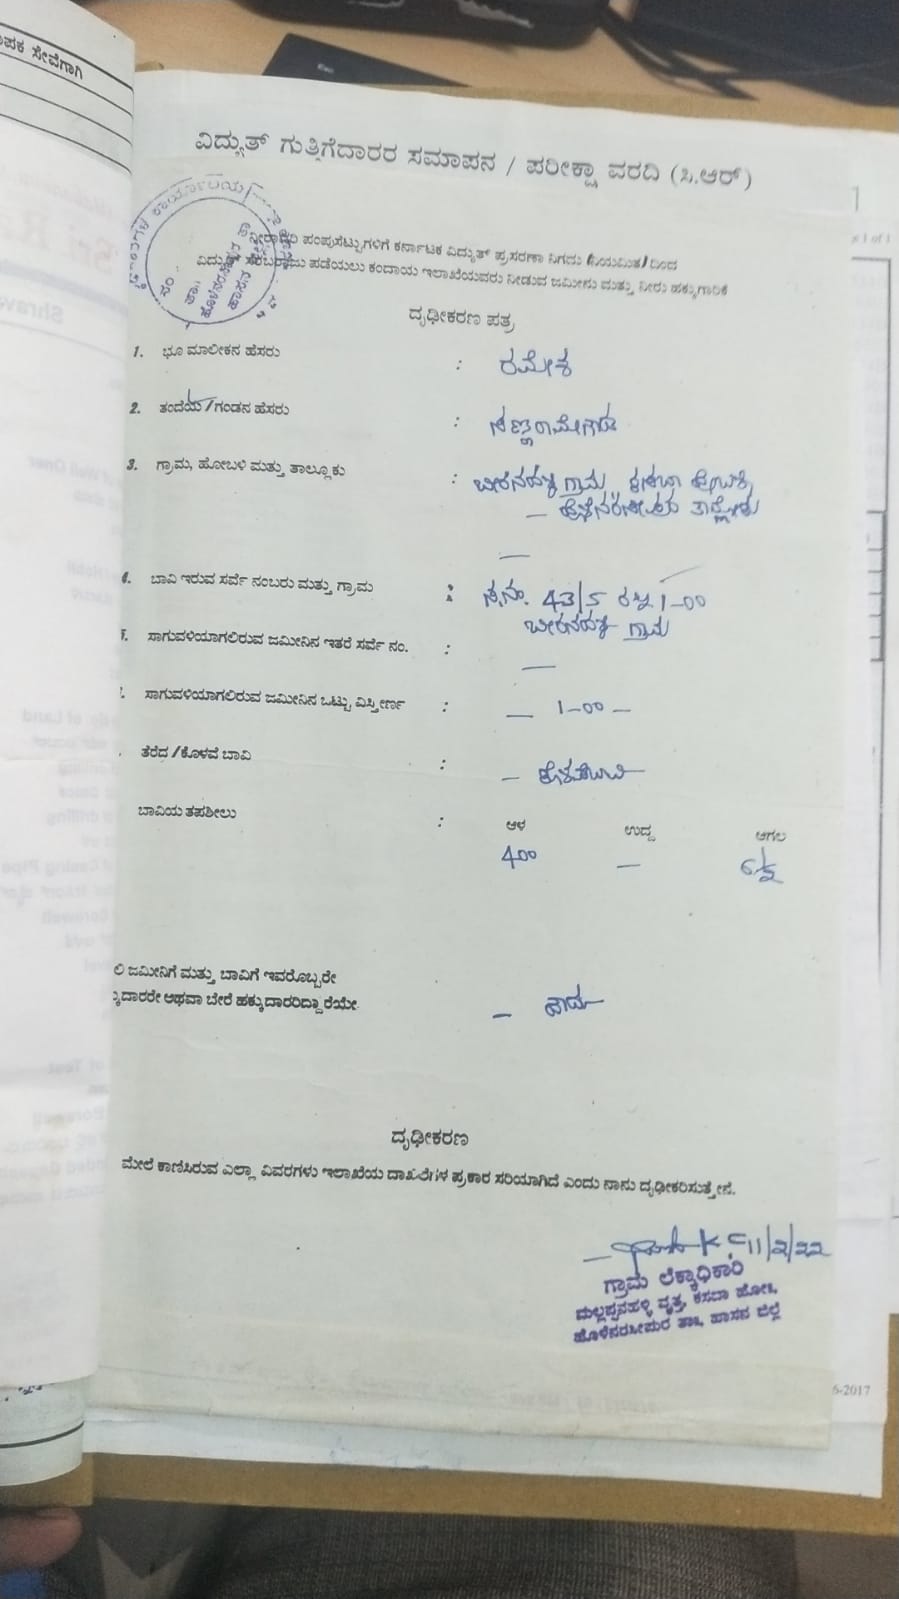 ಪಕ ಸೇವೆಗಾಗಿ
ವಿದ್ಯುತ್ ಗುತ್ತಿಗೆದಾರರ ಸಮಾಪನ / ಪರೀಕ್ಷಾ ವರದಿ (ಸಿ.ಆರ್)
ನೀರಾವರಿ ಪಂಪುಸೆಟ್ಟುಗಳಿಗೆ ಕರ್ನಾಟಕ ವಿದ್ಯುತ್ ಪ್ರಸರಣಾ ನಿಗಮ (ನಿಯಮಿತ) ದಿಂದ
ವಿದ್ಯುತ್ ಸರಬರಾಜು ಪಡೆಯಲು ಕಂದಾಯ ಇಲಾಖೆಯವರು ನೀಡುವ ಜಮೀನು ಮತ್ತು ನೀರು ಹಕ್ಕುಗಾರಿಕೆ
ದೃಢೀಕರಣ ಪತ್ರ
1. ಭೂ ಮಾಲೀಕನ ಹೆಸರು : ರಮೇಶ
2. ತಂದೆಯ / ಗಂಡನ ಹೆಸರು : ಸಣ್ಣರಾಮೇಗೌಡ
3. ಗ್ರಾಮ, ಹೋಬಳಿ ಮತ್ತು ತಾಲ್ಲೂಕು : ಗ್ರಾಮ, ಕಸಬಾ ಹೋಬಳಿ
— ಹೊಳೆನರಸೀಪುರ ತಾಲ್ಲೋಕು
4. ಬಾವಿ ಇರುವ ಸರ್ವೆ ನಂಬರು ಮತ್ತು ಗ್ರಾಮ : ಸ.ನಂ. 43/5 1-00
ಗ್ರಾಮ
ಸಾಗುವಳಿಯಾಗಲಿರುವ ಜಮೀನಿನ ಇತರೆ ಸರ್ವೆ ನಂ. : —
ಸಾಗುವಳಿಯಾಗಲಿರುವ ಜಮೀನಿನ ಒಟ್ಟು ವಿಸ್ತೀರ್ಣ : — 1-00 —
ತೆರೆದ / ಕೊಳವೆ ಬಾವಿ : — ಕೊಳವೆಬಾವಿ
ಬಾವಿಯ ತಪಶೀಲು : ಆಳ ಉದ್ದ ಅಗಲ
400 — 6½
ಲಿ ಜಮೀನಿಗೆ ಮತ್ತು ಬಾವಿಗೆ ಇವರೊಬ್ಬರೇ
ಕ್ಕುದಾರರೇ ಅಥವಾ ಬೇರೆ ಹಕ್ಕುದಾರರಿದ್ದಾರೆಯೇ — ಹೌದು
ದೃಢೀಕರಣ
ಮೇಲೆ ಕಾಣಿಸಿರುವ ಎಲ್ಲಾ ವಿವರಗಳು ಇಲಾಖೆಯ ದಾಖಲೆಗಳ ಪ್ರಕಾರ ಸರಿಯಾಗಿದೆ ಎಂದು ನಾನು ದೃಢೀಕರಿಸುತ್ತೇನೆ.
11/2/22
ಗ್ರಾಮ ಲೆಕ್ಕಾಧಿಕಾರಿ
ಮಲ್ಲಪ್ಪನಹಳ್ಳಿ ವೃತ್ತ, ಕಸಬಾ ಹೋಃ,
ಹೊಳೆನರಸೀಪುರ ತಾಃ, ಹಾಸನ ಜಿಲ್ಲೆ
6-2017